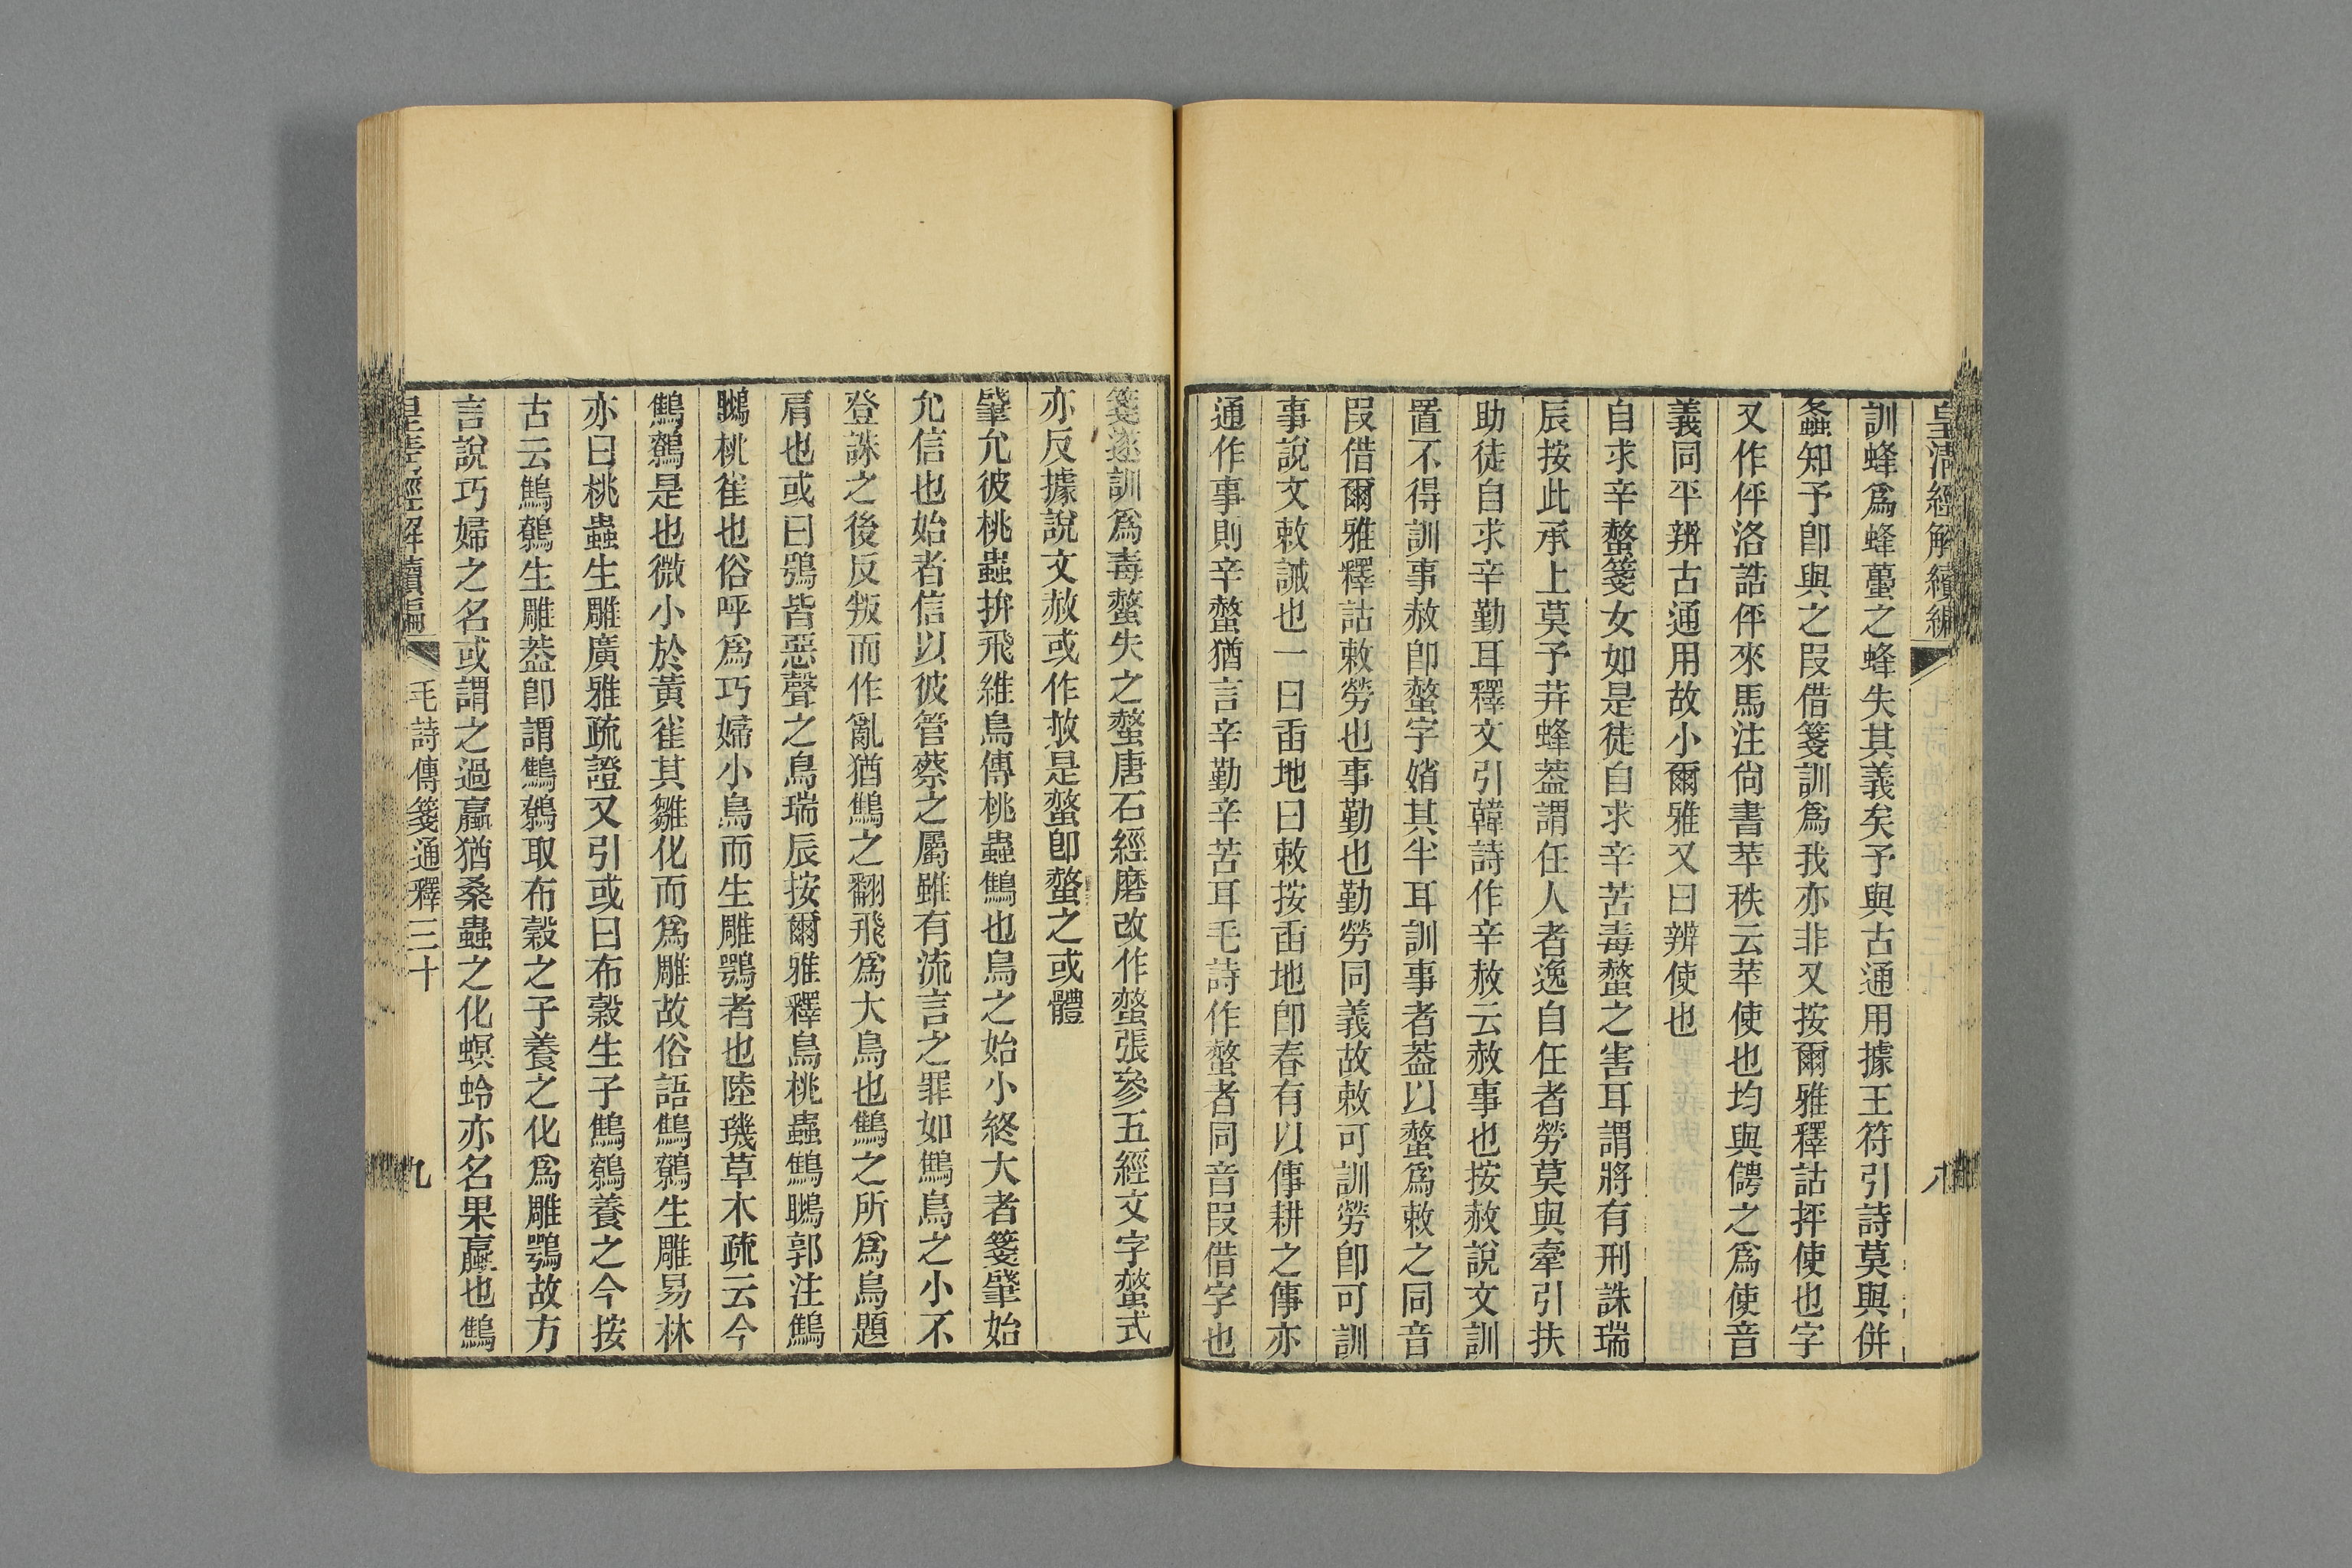 皇清經解續編
八
訓蜂爲蜂蠆之蜂失其義矣予與古通用據王符引詩莫與併
螽知予卽與之叚借箋訓爲我亦非又按爾雅釋詁抨使也字
又作伻洛誥伻來馬注尙書苹秩云苹使也均與德之爲使音
義同平辨古通用故小爾雅又曰辨使也
自求辛螫箋女如是徒自求辛苦毒螫之害耳謂將有刑誅瑞
辰按此承上莫予荓蜂葢謂任人者逸自任者勞莫與牽引扶
助徒自求辛勤耳釋文引韓詩作辛赦云赦事也按赦說文訓
置不得訓事赦卽螫字㛮其半耳訓事者葢以螫爲敕之同音
叚借爾雅釋詁敕勞也事勤也勤勞同義故敕可訓勞卽可訓
事說文敕誡也一曰臿地曰敕按臿地卽春有以倳耕之倳亦
通作事則辛螫猶言辛勤辛苦耳毛詩作螫者同音叚借字也
箋遂訓爲毒螫失之螫唐石經磨改作螫張參五經文字螫式
亦反據說文赦或作𢼜是螫卽螫之或體
肇允彼桃蟲拚飛維鳥傳桃蟲鷦也鳥之始小終大者箋肇始
允信也始者信以彼管蔡之屬雖有流言之罪如鷦鳥之小不
登誅之後反叛而作亂猶鷦之翻飛爲大鳥也鷦之所爲鳥題
肩也或曰鴞皆惡聲之鳥瑞辰按爾雅釋鳥桃蟲鷦鴱郭注鷦
鴱桃雀也俗呼爲巧婦小鳥而生雕鶚者也陸璣草木疏云今
鷦鷯是也微小於黃雀其雛化而爲雕故俗語鷦鷯生雕易林
亦曰桃蟲生雕廣雅疏證又引或曰布穀生子鷦鷯養之今按
古云鷦鷯生雕葢卽謂鷦鷯取布穀之子養之化爲雕鶚故方
言說巧婦之名或謂之過鸁猶桑蟲之化螟蛉亦名果蠃也鷦
皇淸經解續編
毛詩傳箋通釋三十
九